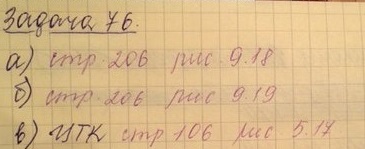 Задача 76.
а) стр. 206 рис. 9.18
б) стр. 206 рис 9.19
в) ЦТК стр 106 рис 5.17